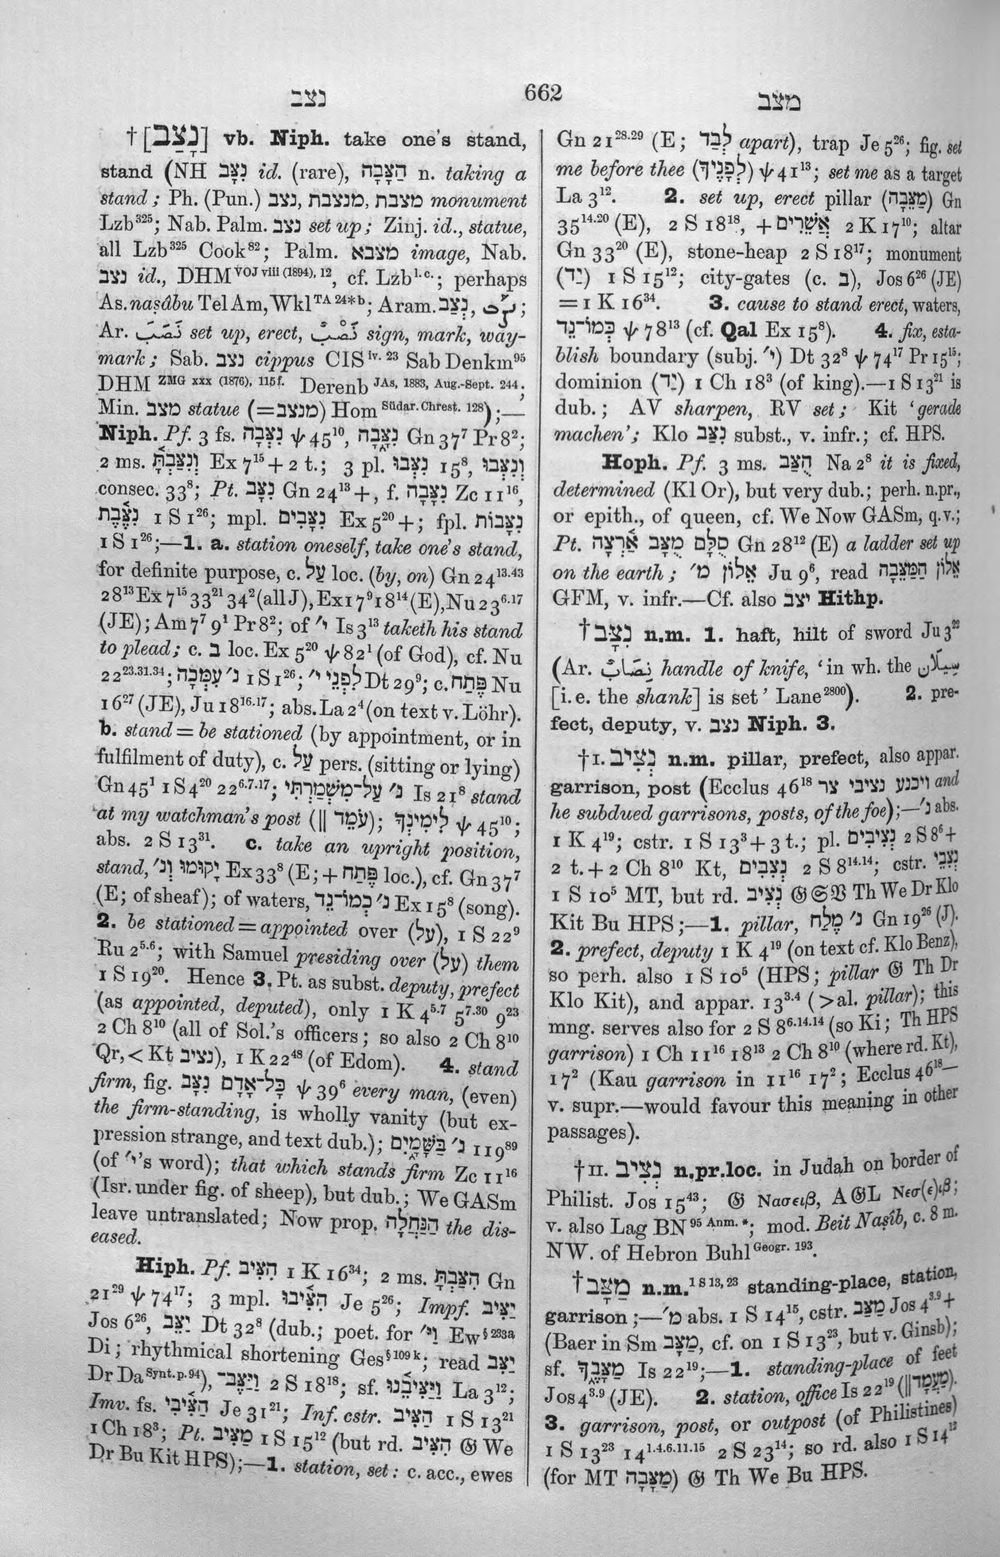 נצב
662
מצב
†[נָצַב] vb. Niph. take one's stand,
stand (NH נִצָּב id. (rare), הַצָּבָה n. taking a
stand; Ph. (Pun.) נצב, מנצבת, מצבת monument
Lzb³²⁵; Nab. Palm. נצב set up; Zinj. id., statue,
all Lzb³²⁵ Cook⁸²; Palm. מצבא image, Nab.
נצב id., DHM VOJ viii (1894), 12, cf. Lzb l.c.; perhaps
As. naṣâbu Tel Am, Wkl TA 24*b; Aram. נְצַב,
Ar. نَصَبَ set up, erect, نُصْبٌ sign, mark, way-
mark; Sab. נצב cippus CIS iv. 23 Sab Denkm⁹⁵
DHM ZMG xxx (1876), 115f. Derenb JAs, 1883, Aug.-Sept. 244;
Min. מצב statue (=מנצב) Hom Südar. Chrest. 128);—
Niph. Pf. 3 fs. נִצְּבָה ψ 45¹⁰, נִצָּבָה Gn 37⁷ Pr 8²;
2 ms. וְנִצַּבְתָּ Ex 7¹⁵ + 2 t.; 3 pl. נִצְּבוּ 15⁸, וְנִצְּבוּ
consec. 33⁸; Pt. נִצָּב Gn 24¹³ +, f. נִצָּבָה Zc 11¹⁶,
נִצֶּבֶת 1 S 1²⁶; mpl. נִצָּבִים Ex 5²⁰ +; fpl. נִצָּבוֹת
1 S 1²⁶;—1. a. station oneself, take one's stand,
for definite purpose, c. עַל loc. (by, on) Gn 24¹³·⁴³
28¹³ Ex 7¹⁵ 33²¹ 34² (all J), Ex 17⁹ 18¹⁴ (E), Nu 23⁶·¹⁷
(JE); Am 7⁷ 9¹ Pr 8²; of ׳י Is 3¹³ taketh his stand
to plead; c. ב loc. Ex 5²⁰ ψ 82¹ (of God), cf. Nu
22²³·³¹·³⁴; נ׳ עִמְּכָה 1 S 1²⁶; לִפְנֵי י׳ Dt 29⁹; c. פֶּתַח Nu
16²⁷ (JE), Ju 18¹⁶·¹⁷; abs. La 2⁴ (on text v. Löhr).
b. stand = be stationed (by appointment, or in
fulfilment of duty), c. עַל pers. (sitting or lying)
Gn 45¹ 1 S 4²⁰ 22⁶·⁷·¹⁷; נ׳ עַל־מִשְׁמַרְתִּי Is 21⁸ stand
at my watchman's post (‖ עֹמֵד); לִימִינְךָ ψ 45¹⁰;
abs. 2 S 13³¹. c. take an upright position,
stand, יָקוּמוּ וְנ׳ Ex 33⁸ (E; + פֶּתַח loc.), cf. Gn 37⁷
(E; of sheaf); of waters, נ׳ כְּמוֹ־נֵד Ex 15⁸ (song).
2. be stationed = appointed over (עַל), 1 S 22⁹
Ru 2⁵·⁶; with Samuel presiding over (עַל) them
1 S 19²⁰. Hence 3. Pt. as subst. deputy, prefect
(as appointed, deputed), only 1 K 4⁵·⁷ 5⁷·³⁰ 9²³
2 Ch 8¹⁰ (all of Sol.'s officers; so also 2 Ch 8¹⁰
Qr, < Kt נציב), 1 K 22⁴⁸ (of Edom). 4. stand
firm, fig. כָּל־אָדָם נִצָּב ψ 39⁶ every man, (even)
the firm-standing, is wholly vanity (but ex-
pression strange, and text dub.); נ׳ בַּשָּׁמָיִם 119⁸⁹
(of ׳י's word); that which stands firm Zc 11¹⁶
(Isr. under fig. of sheep), but dub.; We GASm
leave untranslated; Now prop. הַנַּחְלָה the dis-
eased.
Hiph. Pf. הִצִּיב 1 K 16³⁴; 2 ms. הִצַּבְתָּ Gn
21²⁹ ψ 74¹⁷; 3 mpl. הִצִּיבוּ Je 5²⁶; Impf. יַצִּיב
Jos 6²⁶, יַצֵּב Dt 32⁸ (dub.; poet. for ׳יַ Ew § 233a
Di; rhythmical shortening Ges § 109 k; read יַצֵּב
Dr Da Synt. p. 94), וַיַּצֶּב־ 2 S 18¹⁸; sf. וַיַּצִּיבֵנִי La 3¹²;
Imv. fs. הַצִּיבִי Je 31²¹; Inf. cstr. הַצִּיב 1 S 13²¹
1 Ch 18³; Pt. מַצִּיב 1 S 15¹² (but rd. הִצִּיב 𝔊 We
Dr Bu Kit HPS);—1. station, set: c. acc., ewes
Gn 21²⁸·²⁹ (E; לְבַד apart), trap Je 5²⁶; fig. set
me before thee (לְפָנֶיךָ) ψ 41¹³; set me as a target
La 3¹². 2. set up, erect pillar (מַצֵּבָה) Gn
35¹⁴·²⁰ (E), 2 S 18¹⁸, + אֲשֵׁרִים 2 K 17¹⁰; altar
Gn 33²⁰ (E), stone-heap 2 S 18¹⁷; monument
(יָד) 1 S 15¹²; city-gates (c. ב), Jos 6²⁶ (JE)
= 1 K 16³⁴. 3. cause to stand erect, waters,
כְּמוֹ־נֵד ψ 78¹³ (cf. Qal Ex 15⁸). 4. fix, esta-
blish boundary (subj. ׳י) Dt 32⁸ ψ 74¹⁷ Pr 15²⁵;
dominion (יָד) 1 Ch 18³ (of king).—1 S 13²¹ is
dub.; AV sharpen, RV set; Kit 'gerade
machen'; Klo נִצָּב subst., v. infr.; cf. HPS.
Hoph. Pf. 3 ms. הֻצַּב Na 2⁸ it is fixed,
determined (Kl Or), but very dub.; perh. n.pr.,
or epith., of queen, cf. We Now GASm, q.v.;
Pt. סֻלָּם מֻצָּב אַרְצָה Gn 28¹² (E) a ladder set up
on the earth; אֵלוֹן מ׳ Ju 9⁶, read אֵלוֹן הַמַּצֵּבָה
GFM, v. infr.—Cf. also יצב Hithp.
†נִצָּב n.m. 1. haft, hilt of sword Ju 3²²
(Ar. نِصَابٌ handle of knife, 'in wh. the سِيلَان
[i.e. the shank] is set' Lane²⁸⁰⁰). 2. pre-
fect, deputy, v. נצב Niph. 3.
†I. נְצִיב n.m. pillar, prefect, also appar.
garrison, post (Ecclus 46¹⁸ ויכנע נציבי צר and
he subdued garrisons, posts, of the foe);—נ׳ abs.
1 K 4¹⁹; cstr. 1 S 13³ + 3 t.; pl. נְצִיבִים 2 S 8⁶ +
2 t. + 2 Ch 8¹⁰ Kt, נְצִבִים 2 S 8¹⁴·¹⁴; cstr. נְצִבֵי
1 S 10⁵ MT, but rd. נְצִיב 𝔊 𝔖 𝔙 Th We Dr Klo
Kit Bu HPS;—1. pillar, נ׳ מֶלַח Gn 19²⁶ (J).
2. prefect, deputy 1 K 4¹⁹ (on text cf. Klo Benz),
so perh. also 1 S 10⁵ (HPS; pillar 𝔊 Th Dr
Klo Kit), and appar. 13³·⁴ (>al. pillar); this
mng. serves also for 2 S 8⁶·¹⁴·¹⁴ (so Ki; Th HPS
garrison) 1 Ch 11¹⁶ 18¹³ 2 Ch 8¹⁰ (where rd. Kt),
17² (Kau garrison in 11¹⁶ 17²; Ecclus 46¹⁸—
v. supr.—would favour this meaning in other
passages).
†II. נְצִיב n.pr.loc. in Judah on border of
Philist. Jos 15⁴³; 𝔊 Νασειβ, A 𝔊L Νεσ(ε)ιβ;
v. also Lag BN 95 Anm. *; mod. Beit Naṣib, c. 8 m.
NW. of Hebron Buhl Geogr. 193.
†מַצָּב n.m. 1 S 13, 23 standing-place, station,
garrison;—מ׳ abs. 1 S 14¹⁵, cstr. מַצַּב Jos 4³·⁹ +
(Baer in Sm מַצָּב, cf. on 1 S 13²³, but v. Ginsb);
sf. מַצָּבֶךָ Is 22¹⁹;—1. standing-place of feet
Jos 4³·⁹ (JE). 2. station, office Is 22¹⁹ (‖ מַעֲמָד).
3. garrison, post, or outpost (of Philistines)
1 S 13²³ 14¹·⁴·⁶·¹¹·¹⁵ 2 S 23¹⁴; so rd. also 1 S 14¹²
(for MT מַצָּבָה) 𝔊 Th We Bu HPS.